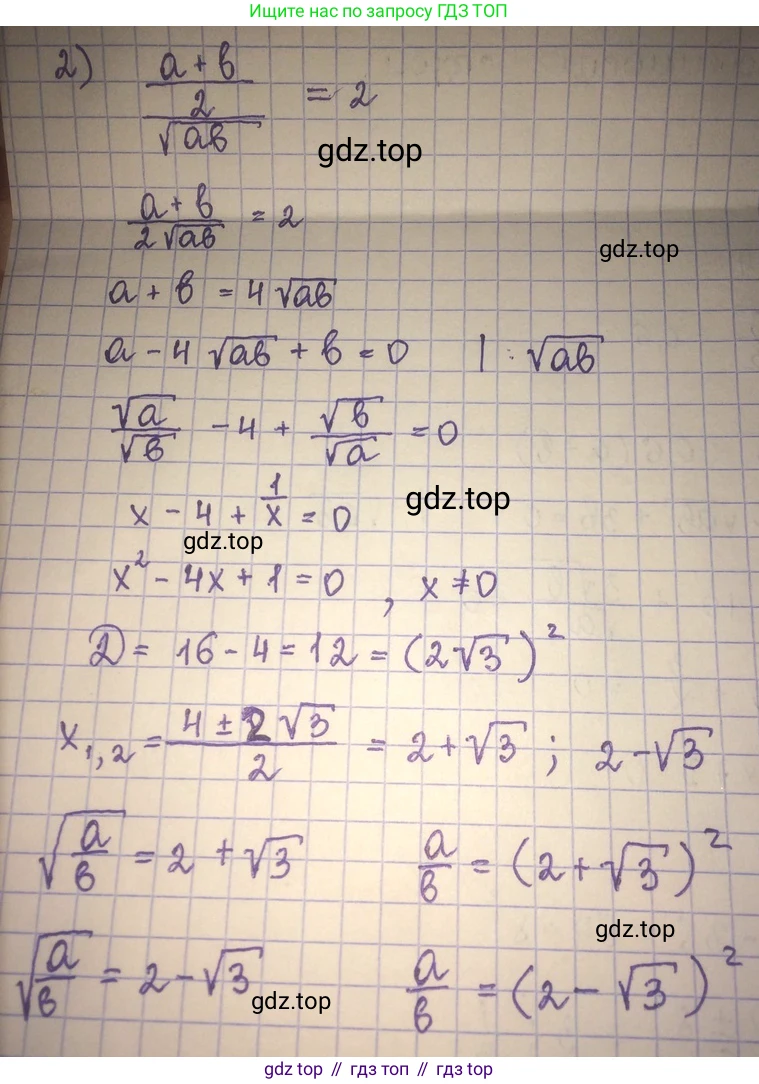 Ищите нас по запросу ГДЗ ТОП
2) ((a + b)/2)/√ab = 2
gdz.top
(a + b)/(2√ab) = 2
gdz.top
a + b = 4√ab
a - 4√ab + b = 0 | : √ab
√a/√b - 4 + √b/√a = 0
gdz.top
x - 4 + 1/x = 0
gdz.top
x² - 4x + 1 = 0 , x ≠ 0
D = 16 - 4 = 12 = (2√3)²
x₁,₂ = (4 ± 2√3)/2 = 2 + √3 ; 2 - √3
√(a/b) = 2 + √3 a/b = (2 + √3)²
gdz.top
√(a/b) = 2 - √3 a/b = (2 - √3)²
gdz.top
gdz top // гдз топ // gdz.top